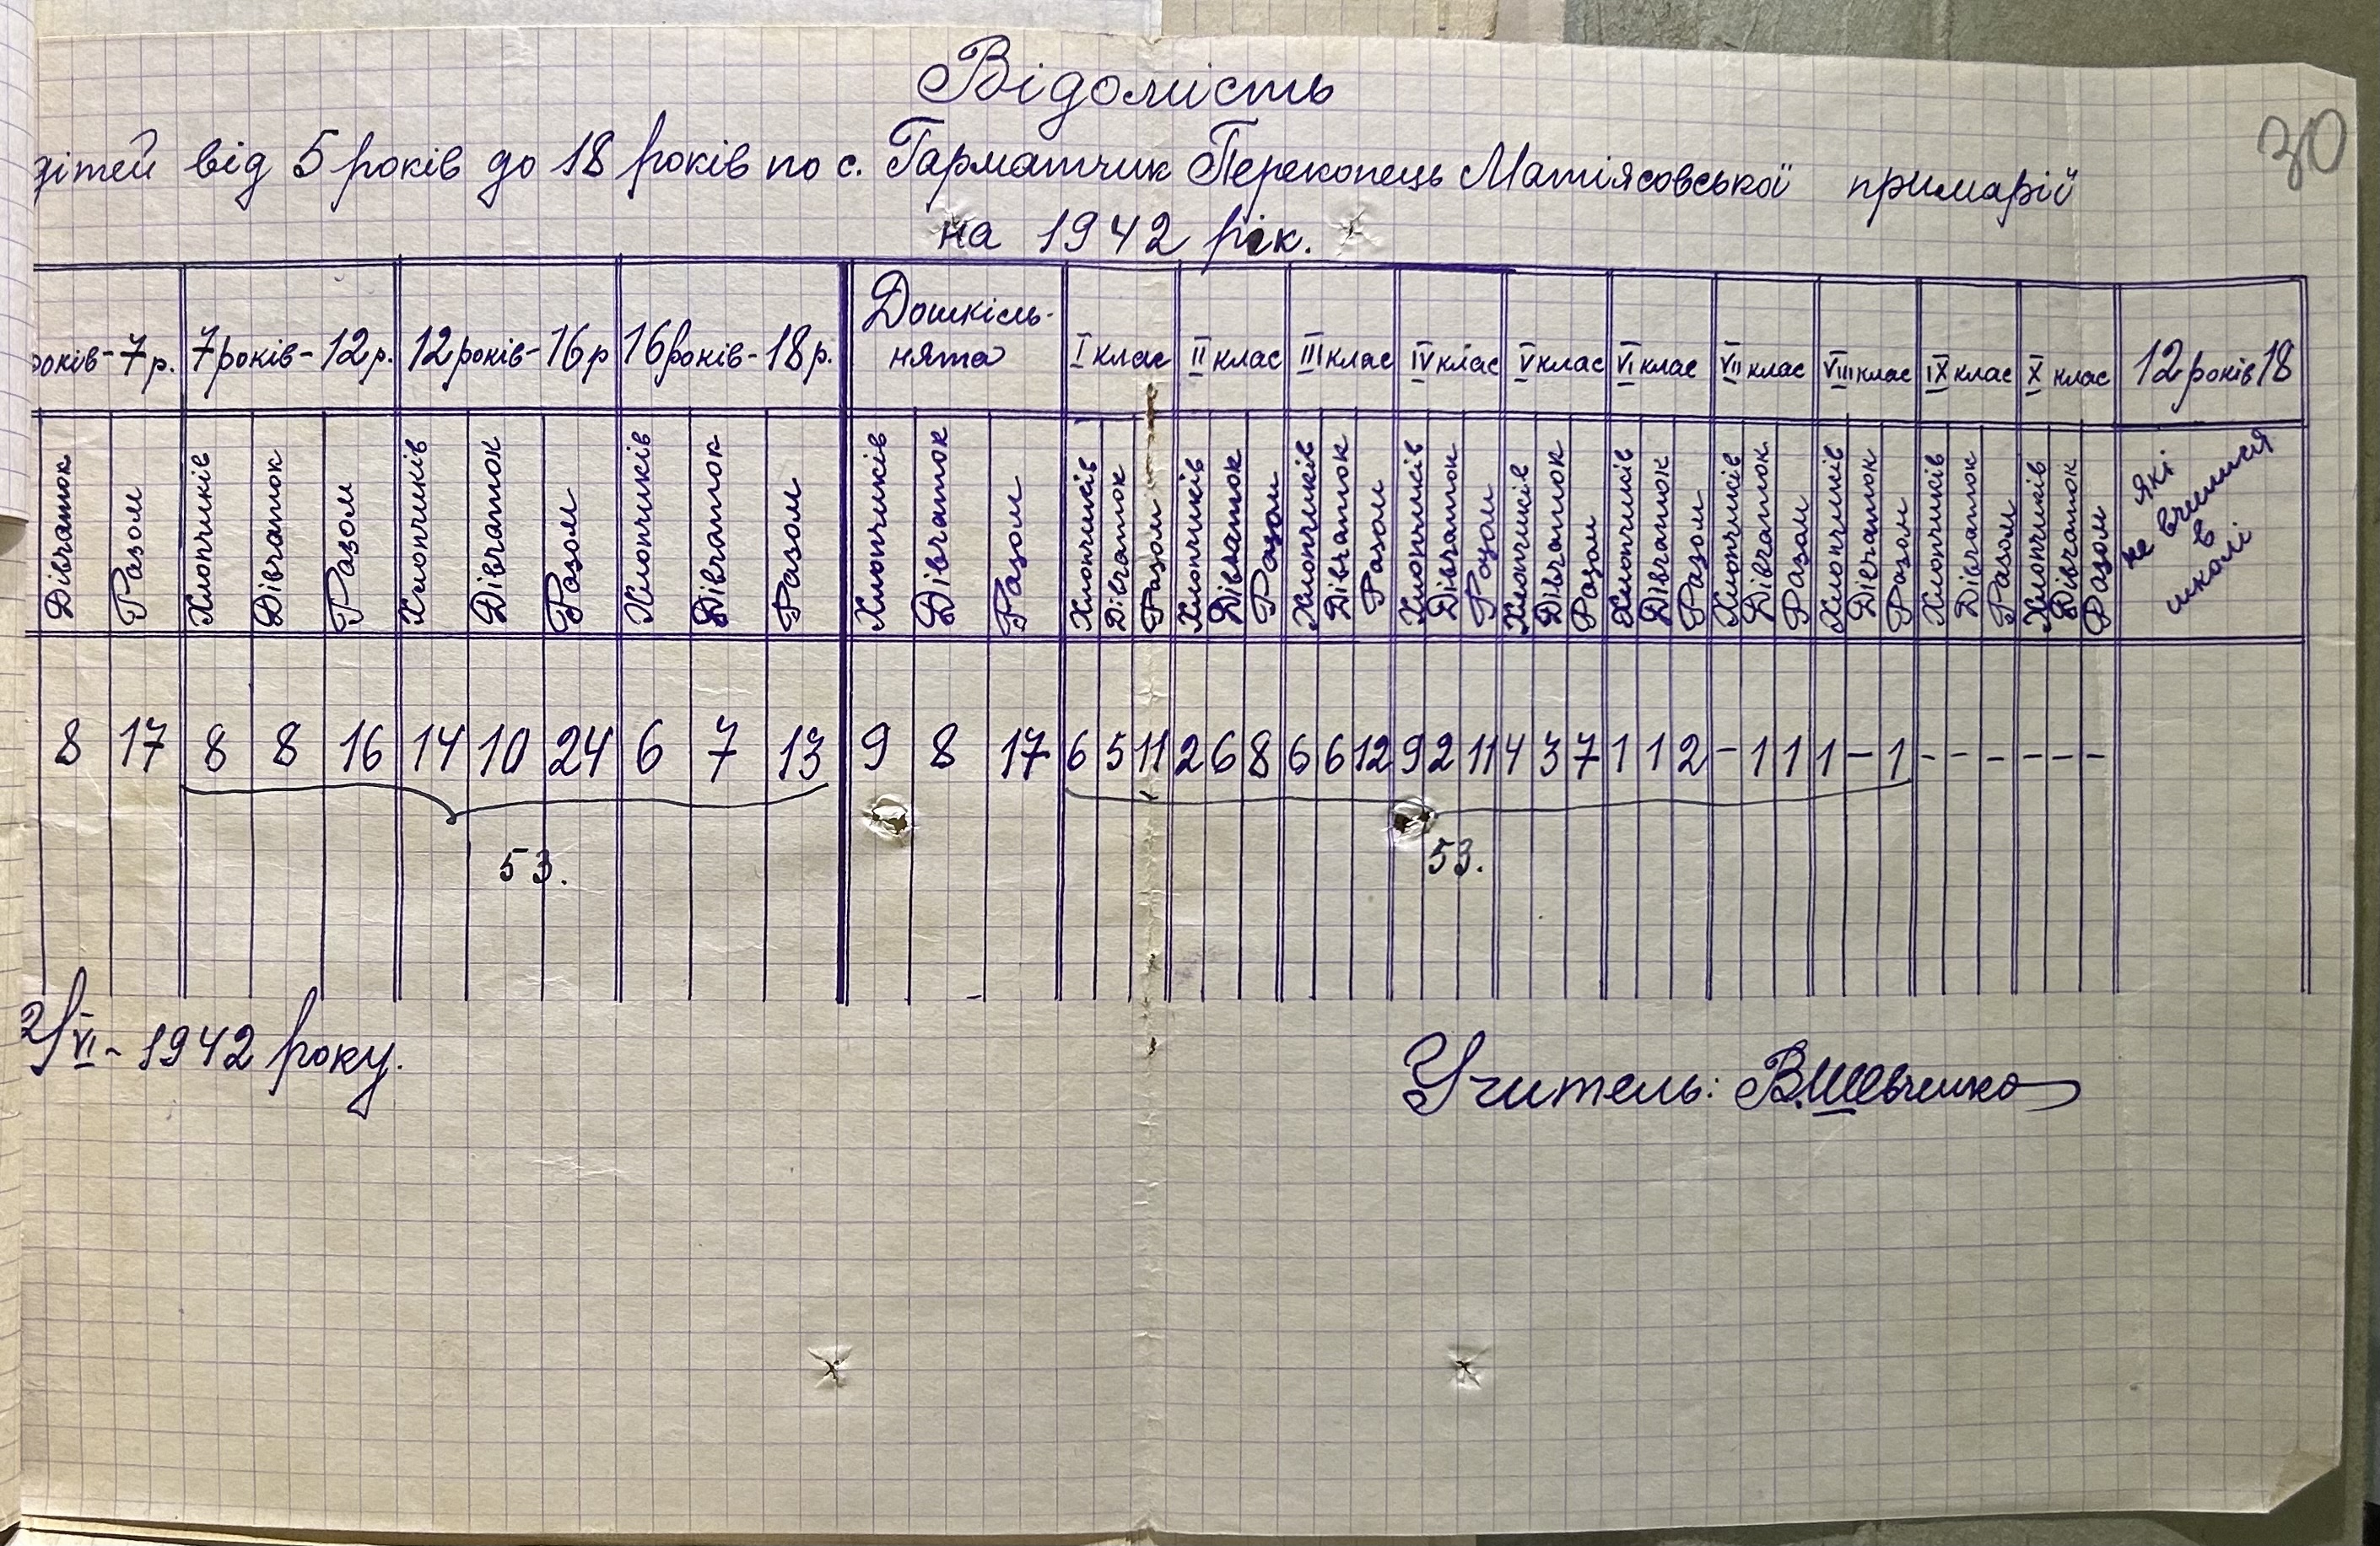 Відомість
30
дітей від 5 років до 18 років по с. Гарматчик Перекопець Матіясовської примарії
на 1942 рік.
років-7р. 7років-12р. 12років-16р 16років-18р. Дошкіль-нята I клас II клас III клас IV клас V клас VI клас VII клас VIII клас IX клас X клас 12років18
Дівчаток Разом Хлопчиків Дівчаток Разом Хлопчиків Дівчаток Разом Хлопчиків Дівчаток Разом Хлопчиків Дівчаток Разом Хлопчиків Дівчаток Разом Хлопчиків Дівчаток Разом Хлопчиків Дівчаток Разом Хлопчиків Дівчаток Разом Хлопчиків Дівчаток Разом Хлопчиків Дівчаток Разом Хлопчиків Дівчаток Разом Хлопчиків Дівчаток Разом Хлопчиків Дівчаток Разом Хлопчиків Дівчаток Разом які не вчилися в школі
8 17 8 8 16 14 10 24 6 7 13 9 8 17 6 5 11 2 6 8 6 6 12 9 2 11 4 3 7 1 1 2 - 1 1 1 - 1 - - - - - -
53. 53.
VI - 1942 року.
Учитель: В.Шевченко